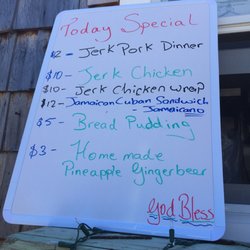 Today Special
$12 - Jerk Pork Dinner
$10 - Jerk Chicken
$10 - Jerk Chicken wrap
$12 - Jamaican Cuban Sandwich
- Jamaicano
$5 - Bread Pudding
$3 - Home made
Pineapple Gingerbeer
God Bless